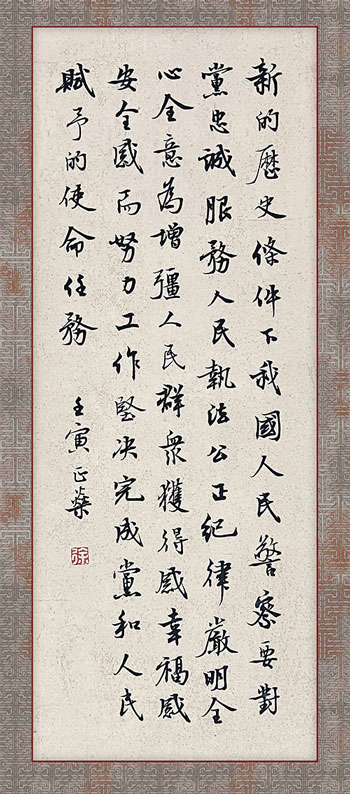 新的歷史條件下我國人民警察要對
黨忠誠服務人民執法公正紀律嚴明全
心全意為增彊人民群眾獲得感幸福感
安全感而努力工作堅決完成黨和人民
賦予的使命任務
壬寅正燊
徐